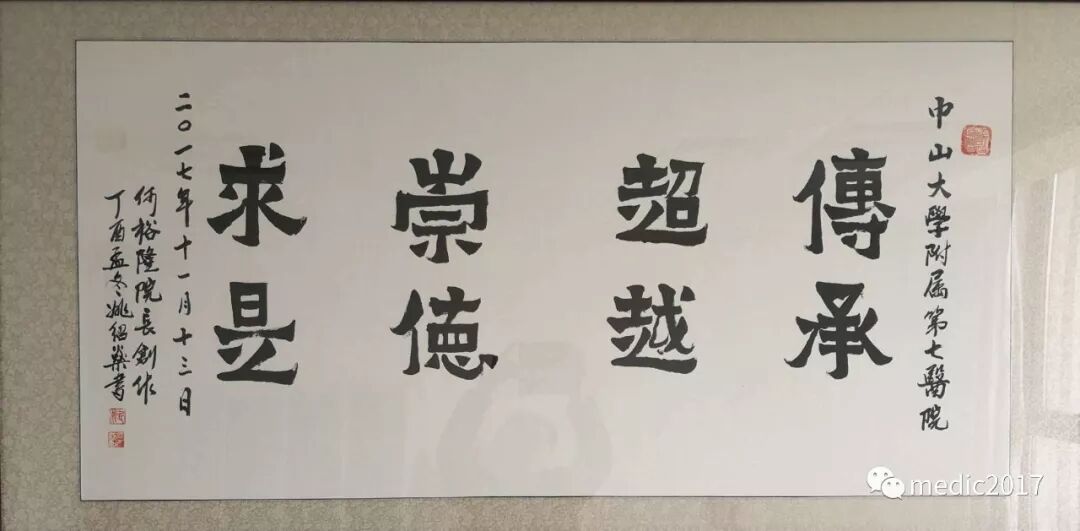 中山大學附属第七醫院
傳承
超越
崇德
求是
二〇一七年十一月十三日
何裕隆院長創作
丁酉孟冬姚紹燊書
medic2017